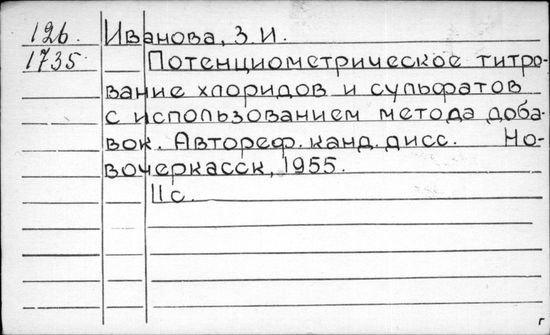 126. Иванова, З.И.
1735. Потенциометрическое титро-
вание хлоридов и сульфатов
с использованием метода доба-
вок. Автореф. канд. дисс. Но-
вочеркасск, 1955.
11 с.
г